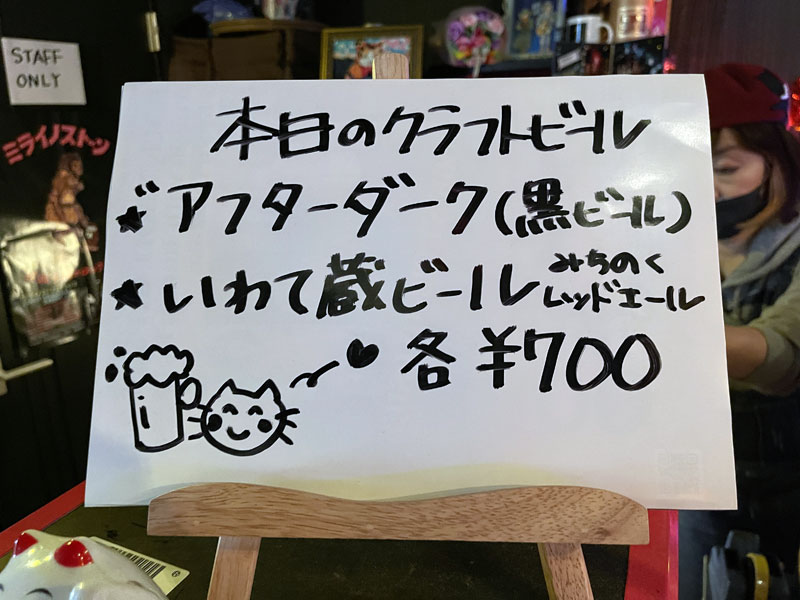 STAFF
ONLY
ミライノストン
本日のクラフトビール
★アフターダーク(黒ビール)
★いわて蔵ビール みちのく
レッドエール
各 ¥700